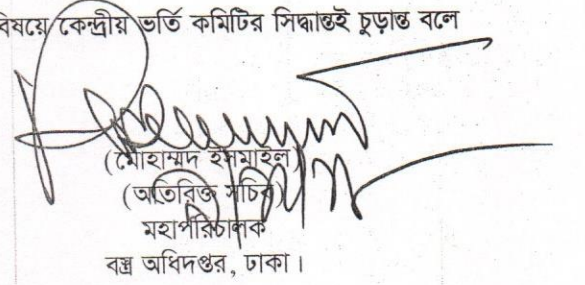 বিষয়ে কেন্দ্রীয় ভর্তি কমিটির সিদ্ধান্তই চুড়ান্ত বলে
(মোহাম্মদ ইসমাইল)
(অতিরিক্ত সচিব)
মহাপরিচালক
বস্ত্র অধিদপ্তর, ঢাকা।